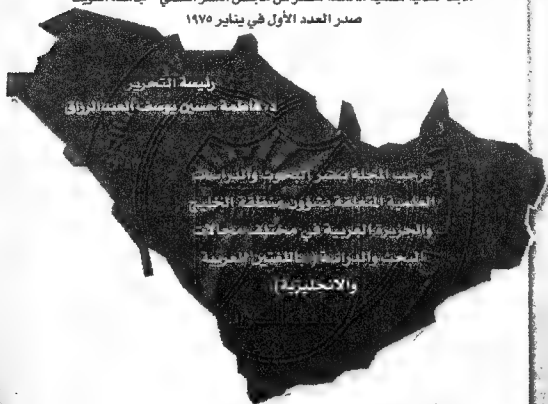 صدر العدد الأول في يناير ١٩٧٥
رئيسة التحرير
د. فاطمة حسين يوسف العبدالرزاق
ترحب المجلة بنشر البحوث والدراسات
العلمية المتعلقة بشؤون منطقة الخليج
والجزيرة العربية في مختلف مجالات
البحث والدراسة باللغتين العربية
والانجليزية